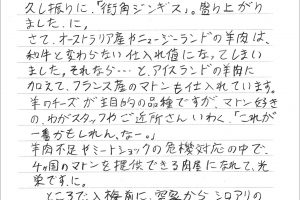 久し振りに、「街角ジンギス」。盛り上がり
ました、に。
さて、オーストラリア産やニュージーランドの羊肉は、
和牛と変わらない仕入れ値になってしまい
ました。それなら…と、アイスランドの羊肉に
加えて、フランス産のマトンも仕入れています。
羊のチーズが主目的の品種ですが、マトン好き
の、わがスタッフやご近所さんいわく、「これが
一番かもしれん、なー。」
羊肉不足やミートショックの危機対応の中で、
4ヶ国のマトンを提供できる肉屋になれて、光
栄ですに。
ところで、入梅前に、から シロアリの